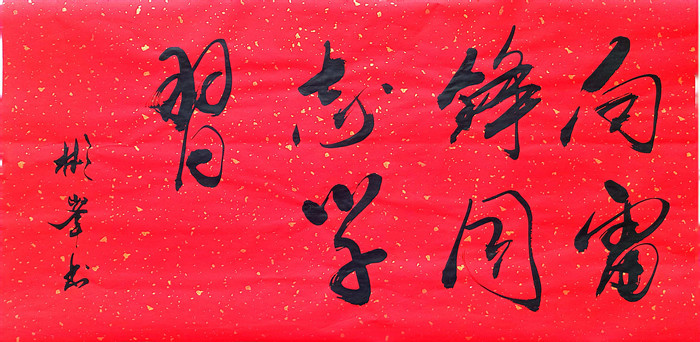 向雷
锋同
志学
習
彬峰书